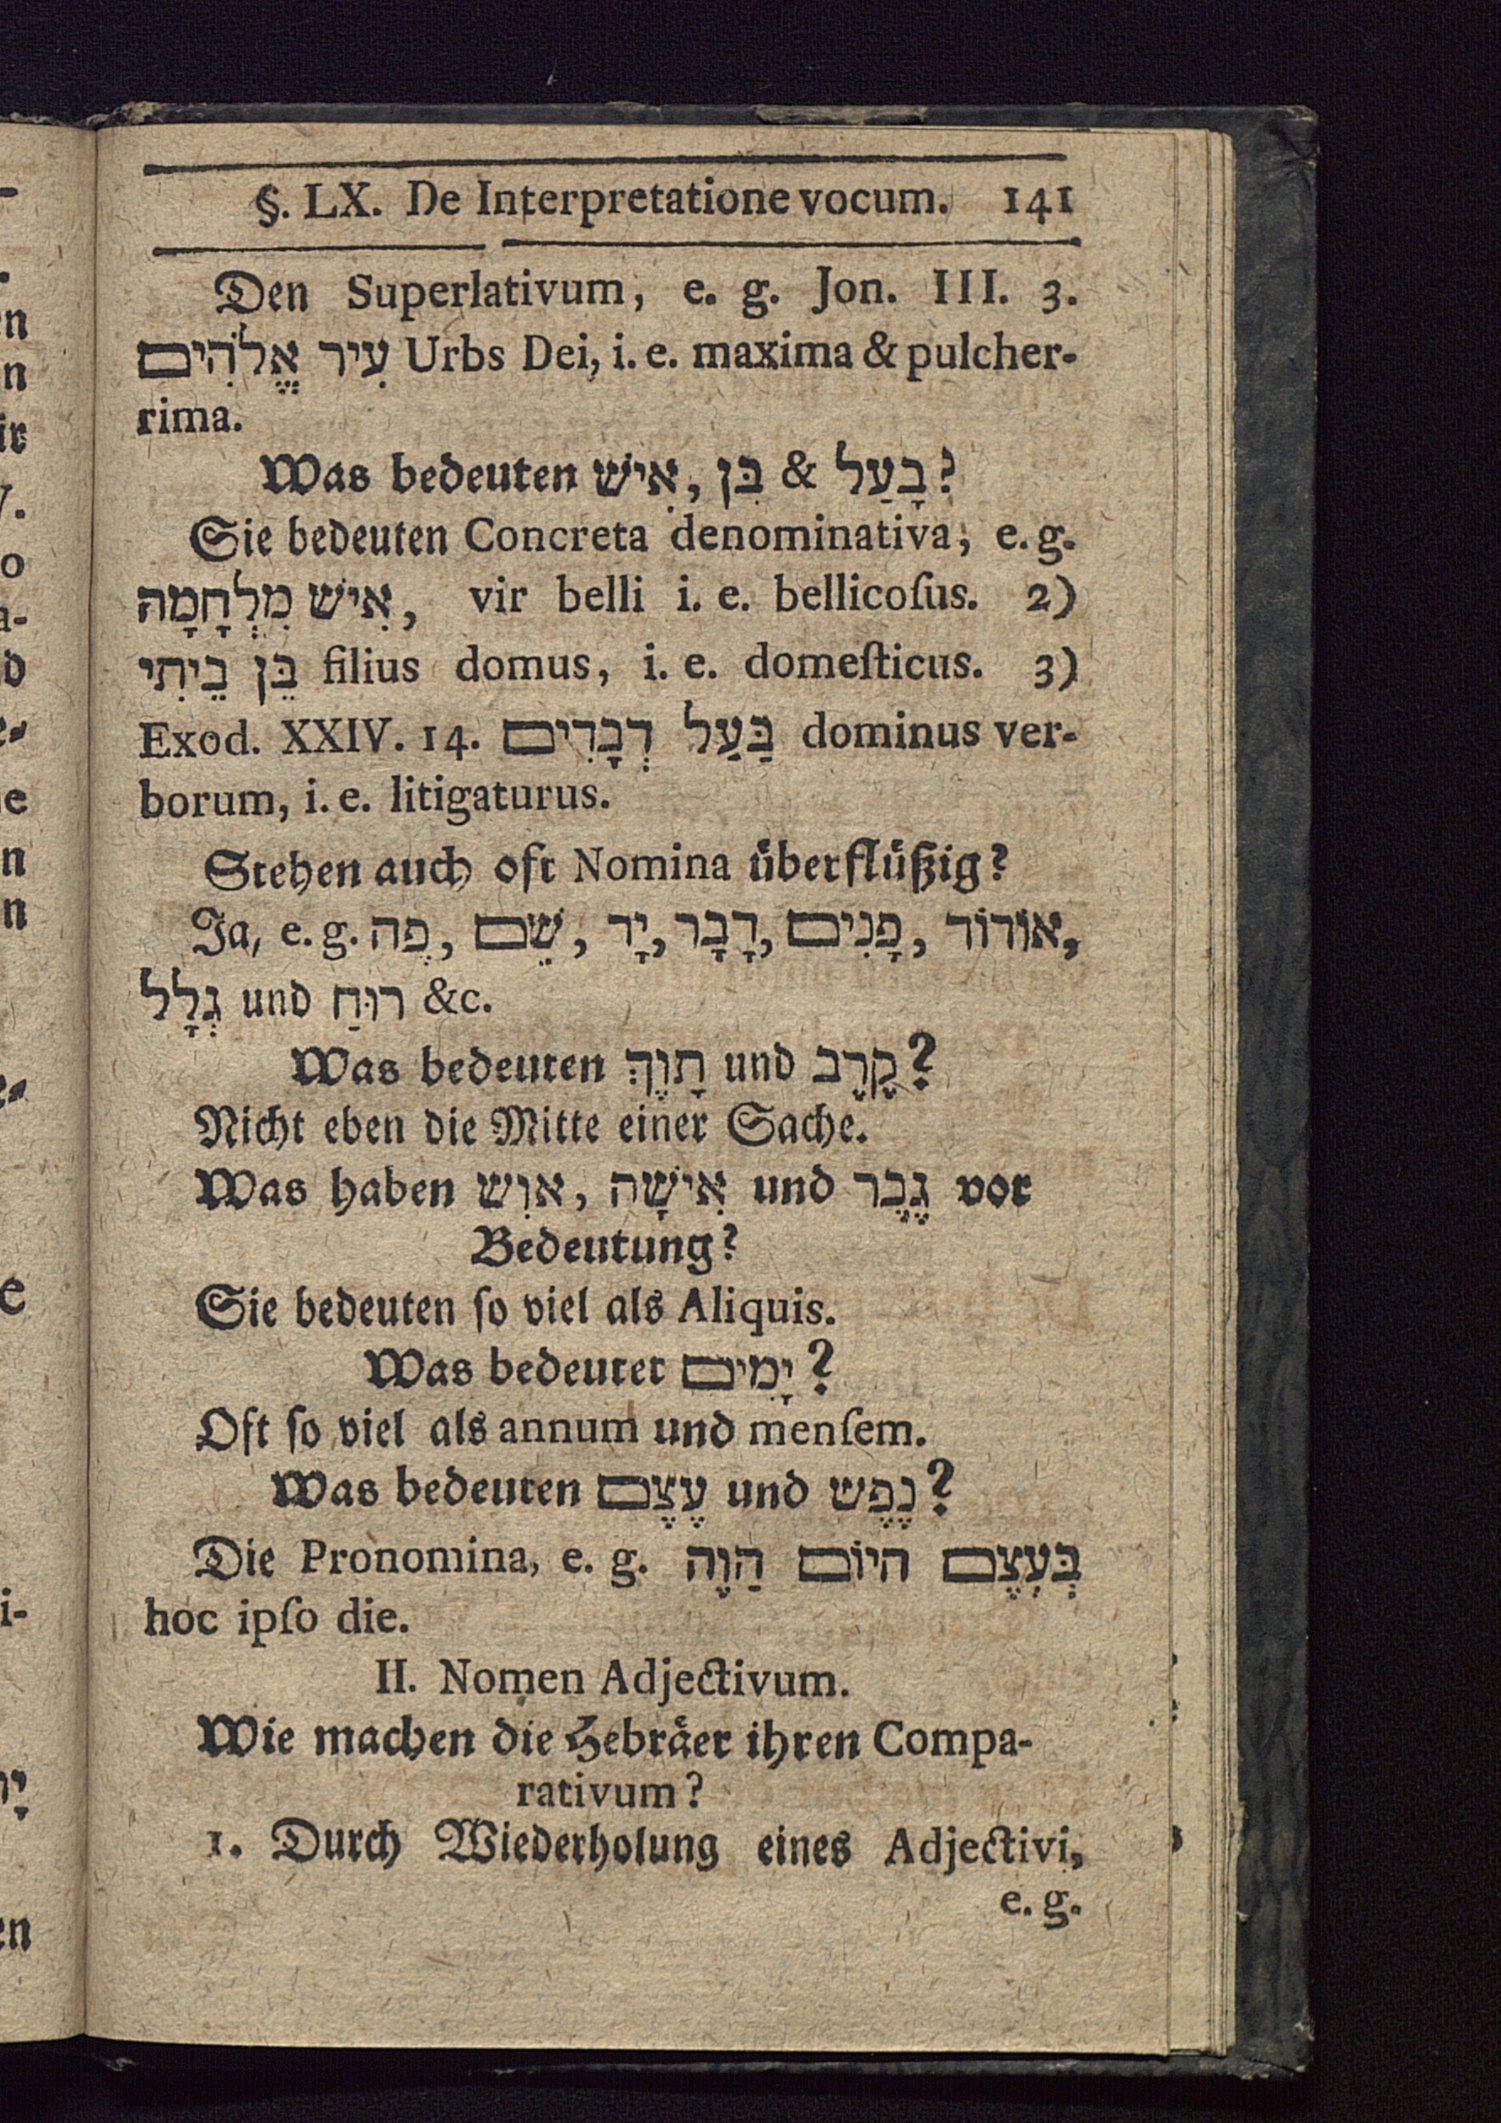 §. LX. De Interpretatione vocum. 141
Den Superlativum, e. g. Jon. III. 3.
עִיר אֱלֹהִים Urbs Dei, i. e. maxima & pulcher-
rima.
Was bedeuten אִישׁ, בִּן & בָעַל?
Sie bedeuten Concreta denominativa, e. g.
אִישׁ מִלְחָמָה, vir belli i. e. bellicoſus. 2)
בֵּן בֵיתִי filius domus, i. e. domeſticus. 3)
Exod. XXIV. 14. בַּעַל דְבָרִים dominus ver-
borum, i. e. litigaturus.
Stehen auch oft Nomina überflüßig?
Ja, e. g. פְה, שֵׁם, יָר, דָבָר, פָנִים, אוֹרוֹד,
גְלָל und רוּחַ &c.
Was bedeuten תָוֶךְ und קֶרֶב?
Nicht eben die Mitte einer Sache.
Was haben אוִש, אִישָׁה und גֶבֶר vor
Bedeutung?
Sie bedeuten ſo viel als Aliquis.
Was bedeutet יָמִים?
Oft ſo viel als annum und menſem.
Was bedeuten עֶצֶם und נֶפֶש?
Die Pronomina, e. g. בְּעֶצֶם היוֹם הַוֶה
hoc ipſo die.
II. Nomen Adjectivum.
Wie machen die Hebräer ihren Compa-
rativum?
1. Durch Wiederholung eines Adjectivi,
e. g.